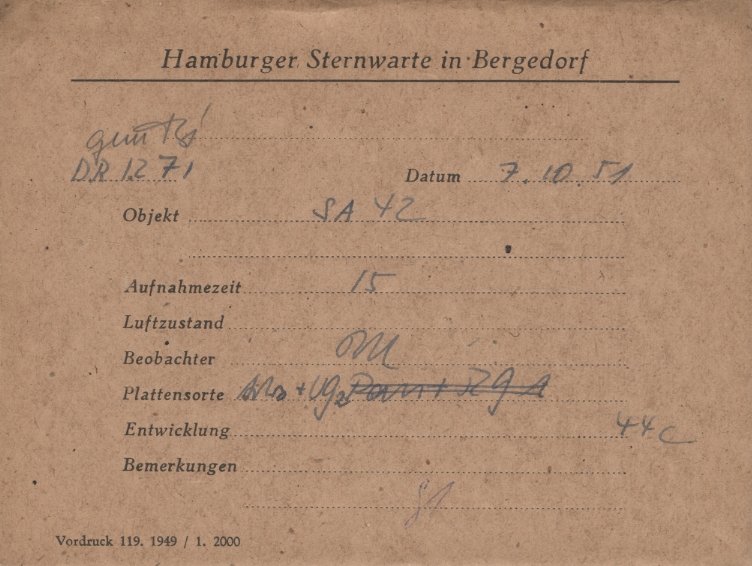 Hamburger Sternwarte in Bergedorf
DR 1271
Datum 7.10.51
Objekt SA 42
Aufnahmezeit 15
Luftzustand
Beobachter
Plattensorte
Entwicklung 44c
Bemerkungen
Vordruck 119. 1949 / 1. 2000